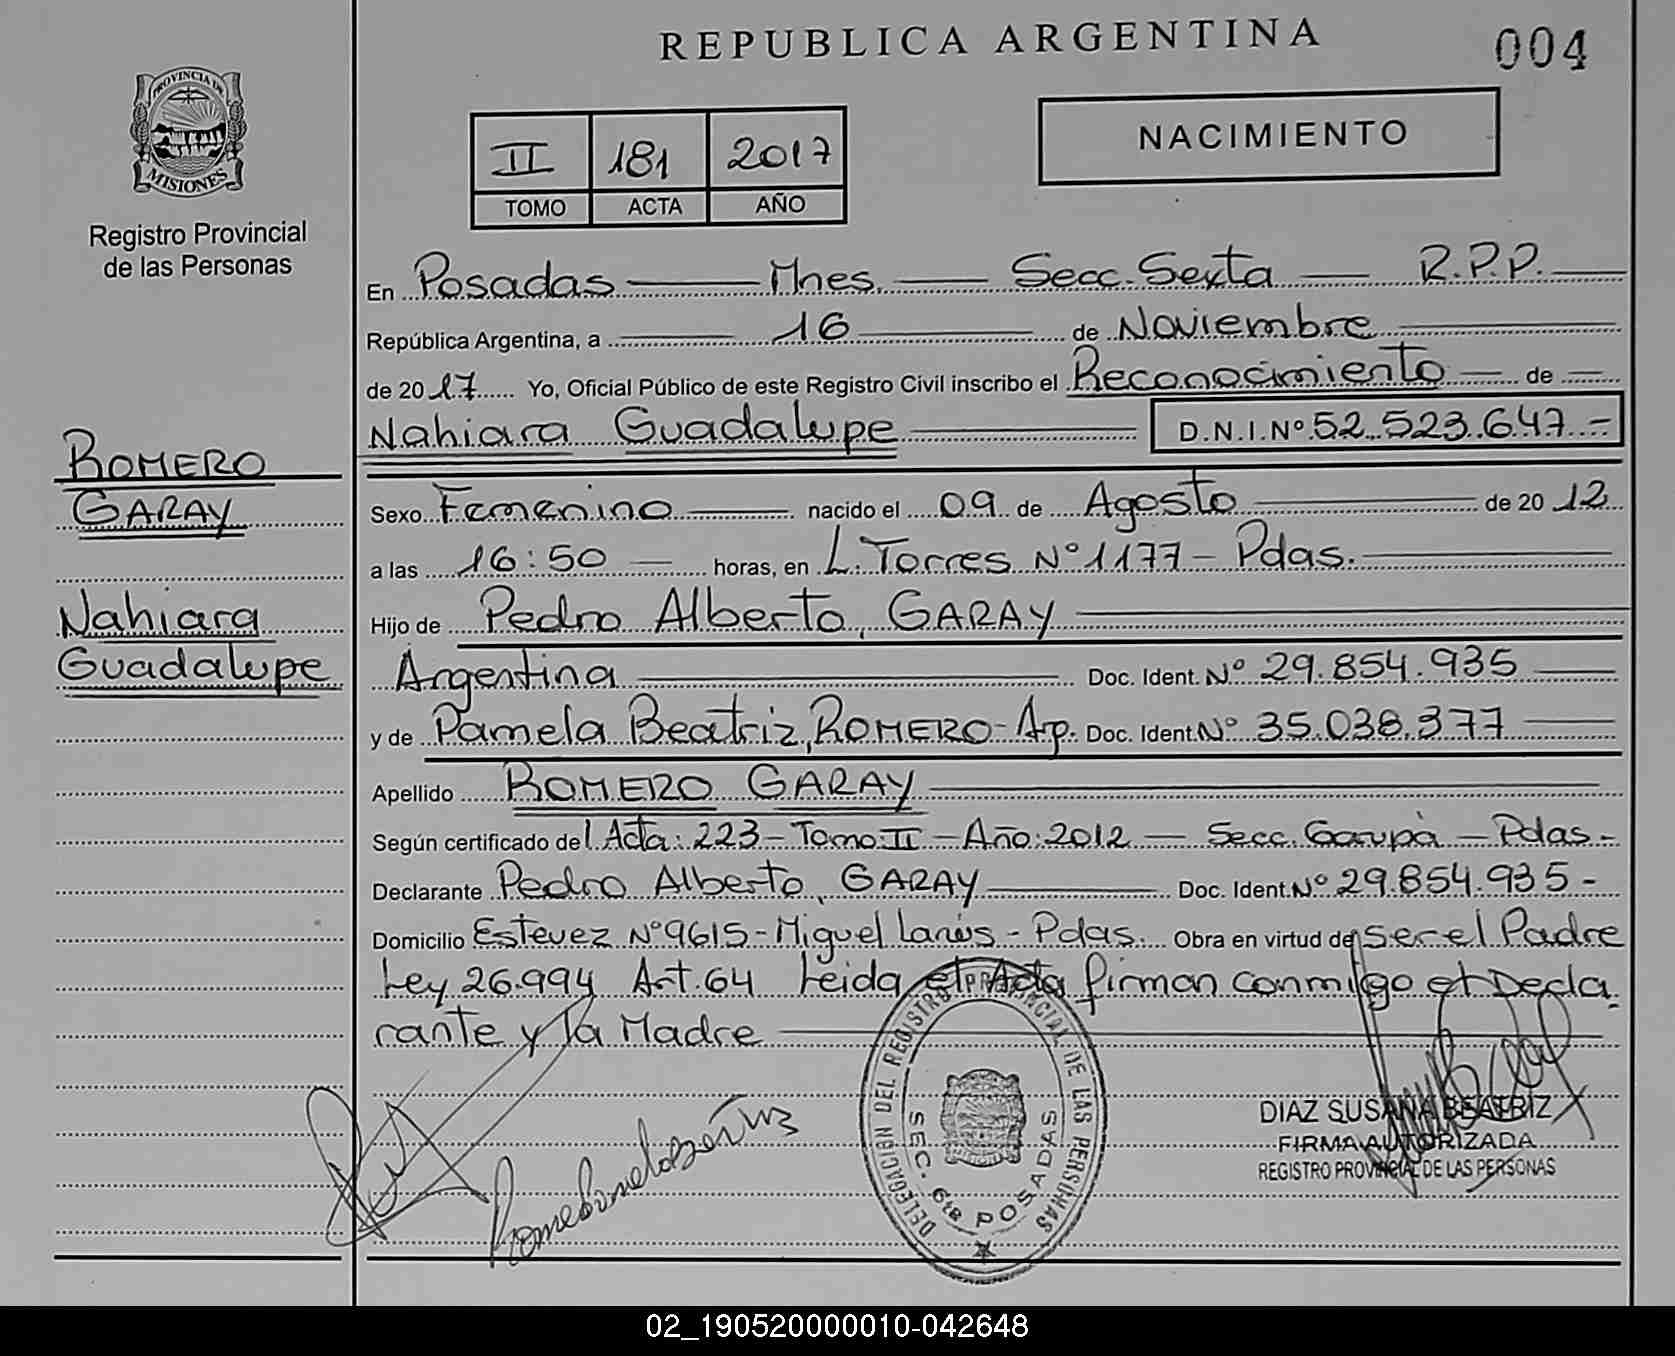 REPUBLICA ARGENTINA
004
PROVINCIA DE
MISIONES
Registro Provincial
de las Personas
II 181 2017
TOMO ACTA AÑO
NACIMIENTO
En Posadas Mnes. Secc. Sexta R.P.P.
República Argentina, a 16 de Noviembre
de 2017 Yo, Oficial Público de este Registro Civil inscribo el Reconocimiento de
Nahiara Guadalupe D.N.I. Nº 52.523.647.-
ROMERO
GARAY
Nahiara
Guadalupe
Sexo Femenino nacido el 09 de Agosto de 2012
a las 16:50 horas, en L. Torres Nº 1177 - Pdas.
Hijo de Pedro Alberto, GARAY
Argentina Doc. Ident. Nº 29.854.935
y de Pamela Beatriz, ROMERO - Arg. Doc. Ident. Nº 35.038.377
Apellido ROMERO GARAY
Según certificado del Acta: 223 - Tomo: II - Año: 2012 - Secc. Garupá - Pdas -
Declarante Pedro Alberto, GARAY Doc. Ident. Nº 29.854.935 -
Domicilio Estevez Nº 9615 - Miguel Lanús - Pdas. Obra en virtud de ser el Padre
Ley 26.994 Art. 64 Leida el Acta firman conmigo el Decla
rante y la Madre
DELEGACION DEL REGISTRO PROVINCIAL DE LAS PERSONAS
SEC. 6ta POSADAS
DIAZ SUSANA BEATRIZ
FIRMA AUTORIZADA
REGISTRO PROVINCIAL DE LAS PERSONAS
02_190520000010-042648